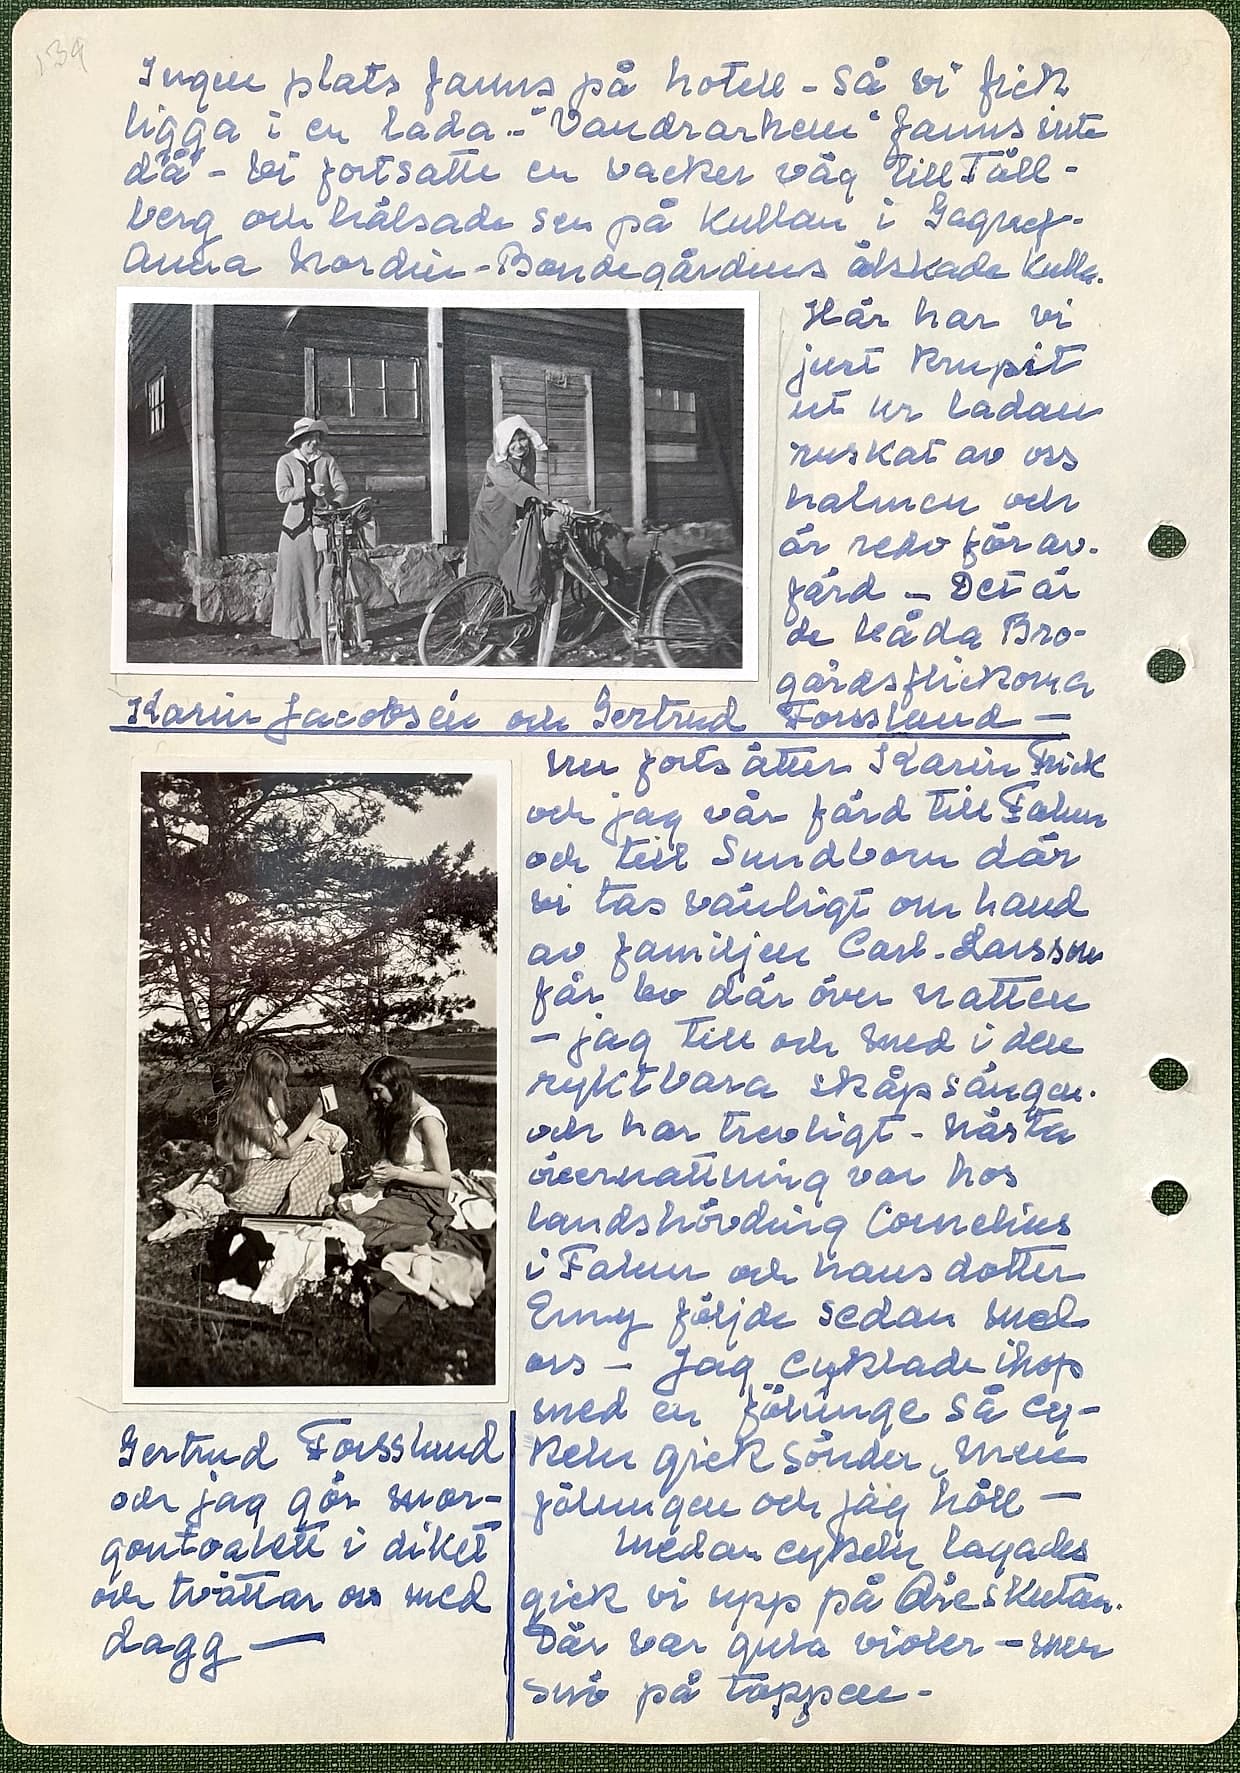 39
Ingen plats fanns på hotell - Så vi fick
ligga i en lada - "Vandrarhem" fanns inte
då - Vi fortsatte en vacker väg till Täll-
berg och hälsade sen på Kullan i Gagnef-
Anna Nordin - Bondegårdens älskade Kulla.
Här har vi
just krupit
ut ur ladan
ruskat av oss
halmen och
är redo för av-
färd - Det är
de båda Bro-
gårdsflickorna
Karin Jacobsén och Gertrud Forsslund -
nu fortsätter Karin Frick
och jag vår färd till Falun
och till Sundborn där
vi tas vänligt om hand
av familjen Carl-Larsson
får bo där över natten
- jag till och med i den
ryktbara skåpsängen.
och har trevligt - Nästa
övernattning var hos
landshövding Cornelius
i Falun och hans dotter
Enny följde sedan med
oss - Jag cyklade ihop
med en fölunge så cy-
keln gick sönder, men
fölungen och jag höll -
Medan cykeln lagades
gick vi upp på Åreskutan.
Där var gula violer - men
snö på toppen -
Gertrud Forsslund
och jag gör mor-
gontoalett i diket
och tvättar oss med
dagg -